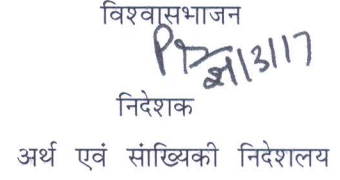 विश्वासभाजन
निदेशक
अर्थ एवं सांख्यिकी निदेशलय